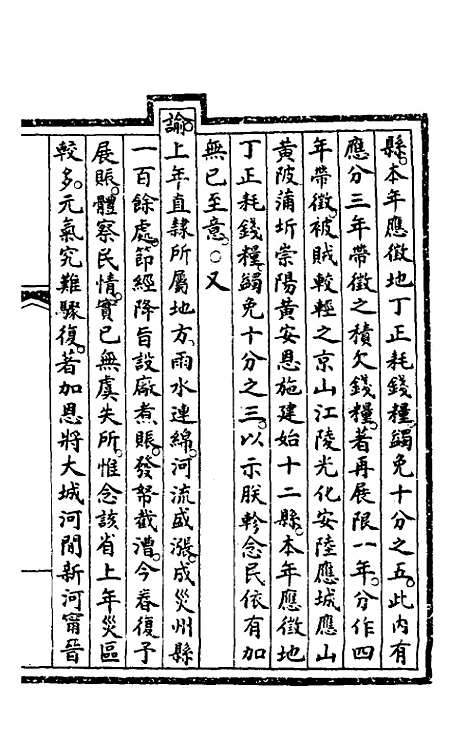 縣。本年應徵地丁正耗錢糧蠲免十分之五。此內有
應分三年帶徵之積欠錢糧。著再展限一年。分作四
年帶徵。被賊較輕之京山江陵光化安陸應城應山
黃陂蒲圻崇陽黃安恩施建始十二縣。本年應徵地
丁正耗錢糧蠲免十分之三。以示朕軫念民依有加
無已至意。○又
諭。上年直隸所屬地方。雨水連綿。河流盛漲。成災州縣
一百餘處。節經降旨設廠煮賑。發帑截漕。今春復予
展賑。體察民情。實已無虞失所。惟念該省上年災區
較多。元氣究難驟復。著加恩將大城河間新河甯晉